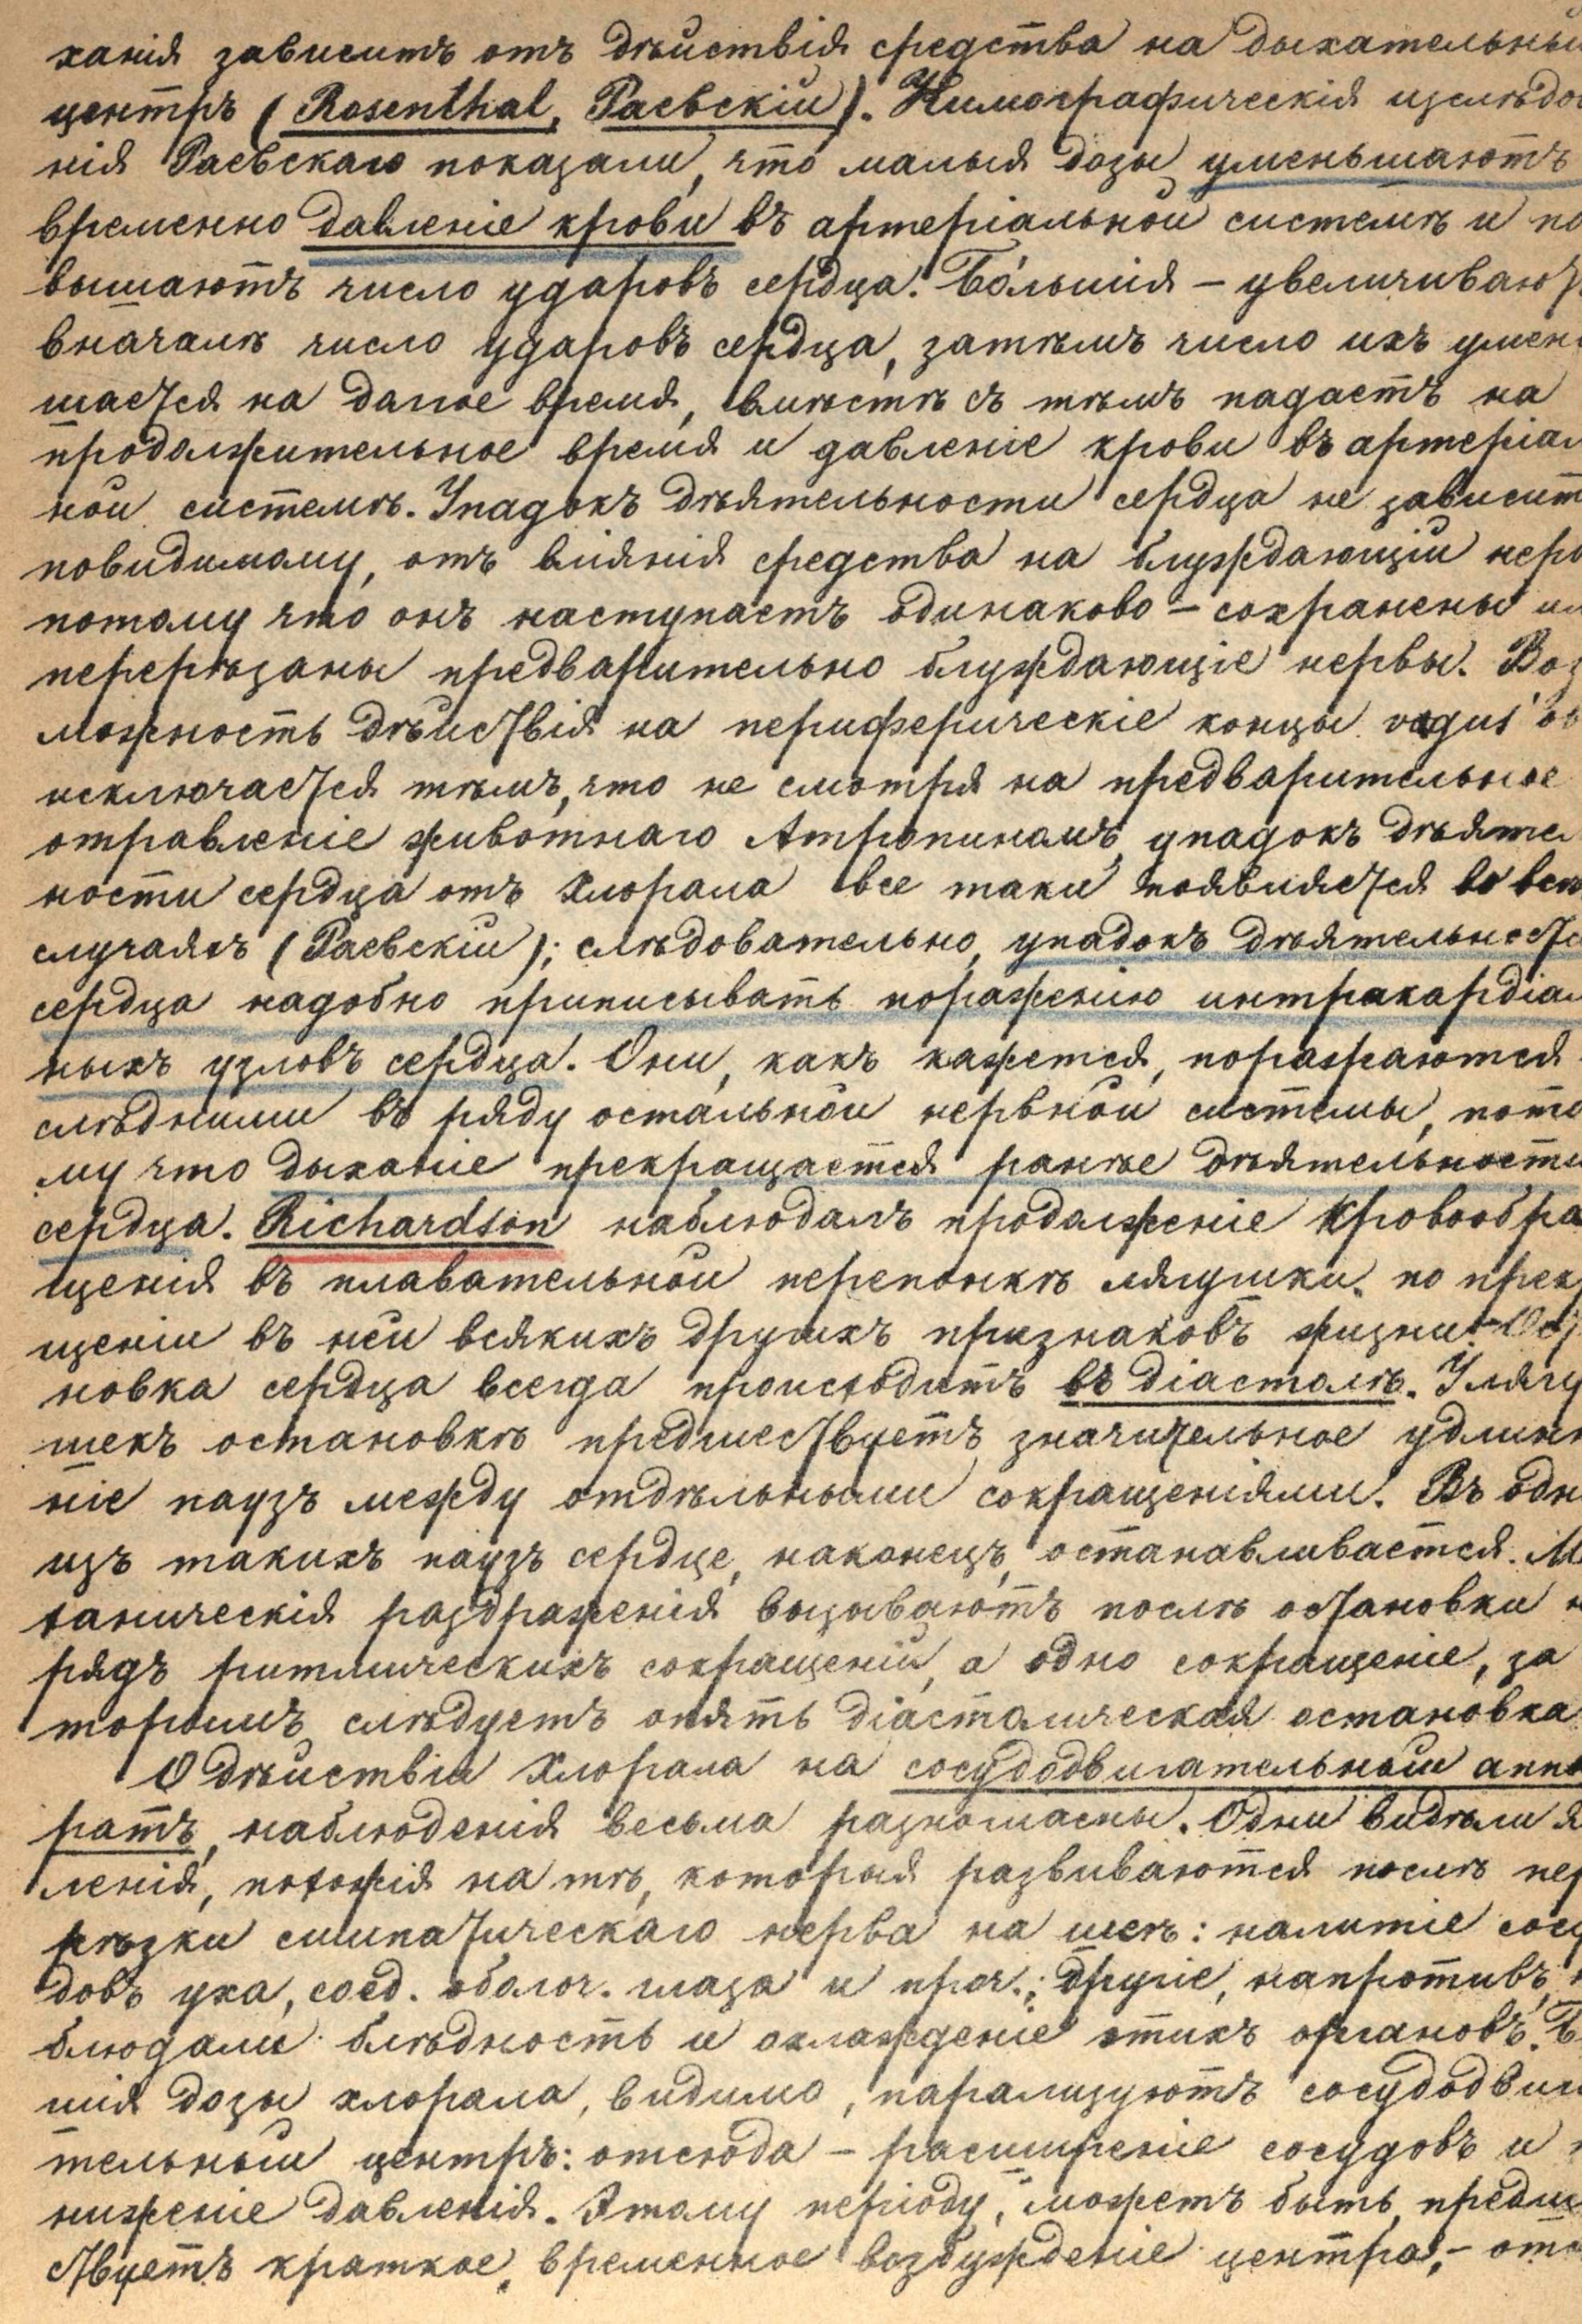 ханія зависитъ отъ дѣйствія средства на дыхательный
центръ (Rosenthal, Раевскій). Кимографическія изслѣдо
нія Раевскаго показали, что малыя дозы уменьшаютъ
временно давленіе крови въ артеріальной системѣ и по
вышаютъ число ударовъ сердца. Бо́льшія – увеличиваютъ
вначалѣ число ударовъ сердца, затѣмъ число ихъ умень
шается на далое время, вмѣстѣ съ тѣмъ падаетъ на
продолжительное время и давленіе крови въ артеріал
ной системѣ. Упадокъ дѣятельности сердца не зависит
повидимому, отъ вліянія средства на блуждающій нерв
потому что онъ наступаетъ одинаково – сохранены ил
перерѣзаны предварительно блуждающіе нервы. Воз
можность дѣйствія на периферическіе концы vagus'ов
исключается тѣмъ, что не смотря на предварительное
отравленіе животнаго Атропиномъ, упадокъ дѣятел
ности сердца отъ Хлорала все таки появляется во всѣ
случаяхъ (Раевскій); слѣдовательно, упадокъ дѣятельности
сердца надобно приписывать пораженію интракардіал
ныхъ узловъ сердца. Они, какъ кажется, поражаются
слѣдними въ ряду остальной нервной системы, пото
му что дыханіе прекращается ранѣе дѣятельности
сердца. Richardson наблюдалъ продолженіе кровообра
щенія въ плавательной перепонкѣ лягушки, по прекр
щеніи въ ней всякихъ другихъ признаковъ жизни. – Ост
новка сердца всегда происходитъ въ діастолѣ. У лягу
шекъ остановкѣ предшествуетъ значительное удлинн
ніе паузъ между отдѣльными сокращеніями. Въ одн
изъ такихъ паузъ сердце, наконецъ, останавливается. М
ханическія раздраженія вызываютъ послѣ остановки н
рядъ ритмическихъ сокращеній, а одно сокращеніе, за
торымъ слѣдуетъ опять діастолическая остановка
О дѣйствіи Хлорала на сосудодвигательный аппа
ратъ, наблюденія весьма разногласны. Одни видѣли я
ленія, похожія на тѣ, которыя развиваются послѣ пер
рѣзки симпатическаго нерва на шеѣ: налитіе сосу
довъ уха, соед. оболоч. глаза и проч.; другіе, напротивъ, н
блюдали блѣдность и охлажденіе этихъ органовъ. Б
шія дозы хлорала, видимо, парализуютъ сосудодвиг
тельный центръ: отсюда – расширеніе сосудовъ и
ниженіе давленія. Этому періоду, можетъ быть, предш
ствуетъ краткое, временное возбужденіе центра, – отс